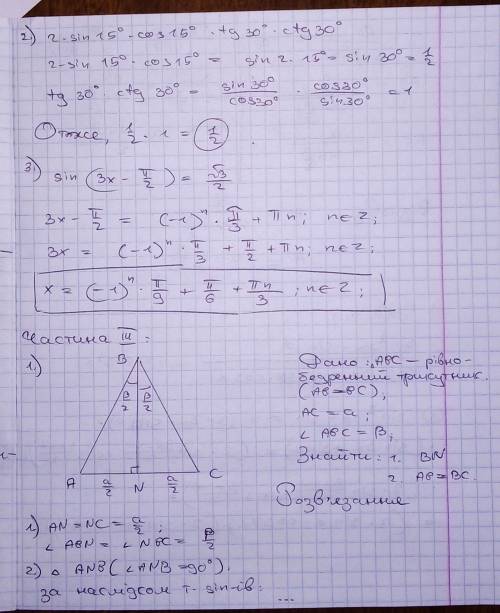 2) 2 · sin 15° · cos 15° · tg 30° · ctg 30°
2 · sin 15° · cos 15° = sin 2 · 15° = sin 30° = 1/2
tg 30° · ctg 30° = sin 30°/cos 30° · cos 30°/sin 30° = 1
Отже, 1/2 · 1 = 1/2 .
3) sin (3x - π/2) = √3/2
3x - π/2 = (-1)ⁿ · π/3 + πn; n∈Z;
3x = (-1)ⁿ · π/3 + π/2 + πn; n∈Z;
x = (-1)ⁿ · π/9 + π/6 + πn/3 ; n∈Z;
Частина III :
1)
B
β/2 β/2
A a/2 N a/2 C
Дано: △ABC – рівно-
бедренний трикутник.
(AB=BC),
AC = a ;
∠ ABC = β;
Знайти: 1. BN
2. AB = BC.
Розв'язання
1) AN = NC = a/2 ;
∠ ABN = ∠ NBC = β/2
2) △ ANB (∠ANB = 90°).
за наслідком т- sin-ів: ...